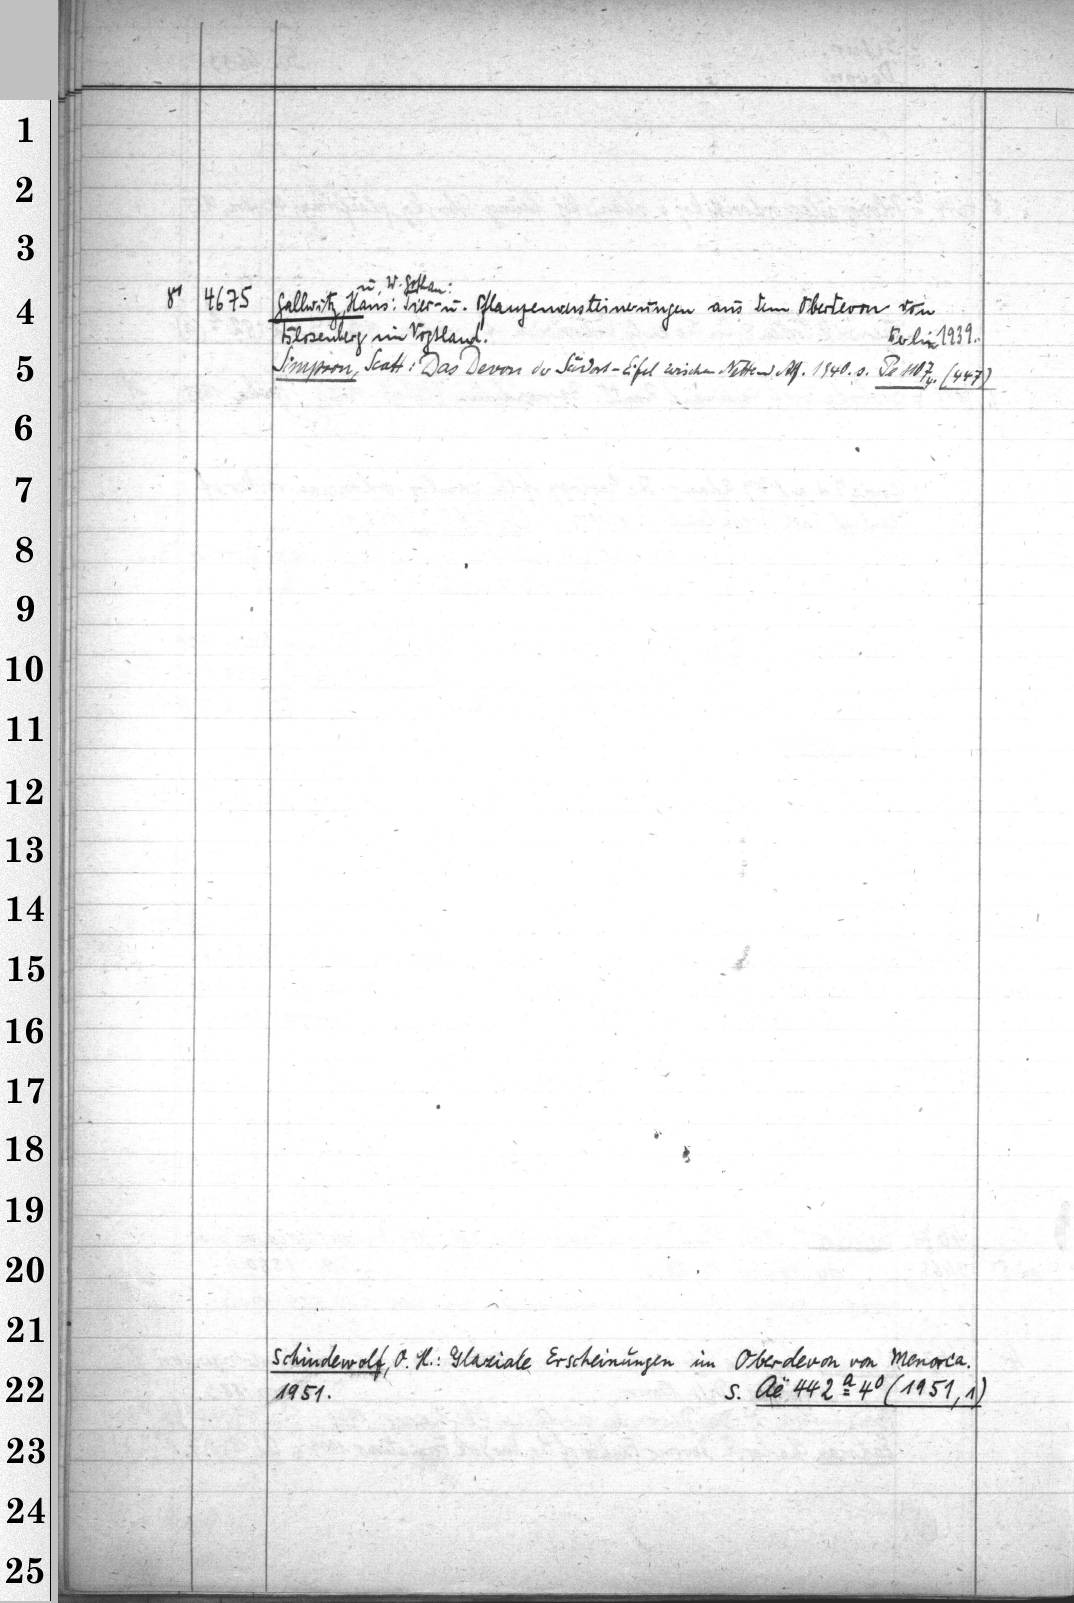 1
2
3
u. W. Gothan:
4 8° 4675 Gallwitz, Hans: Tier- u. Pflanzenversteinerungen aus dem Oberdevon von
Blosenberg im Vogtland. Berlin 1939.
5 Simpson, Scott: Das Devon der Südost-Eifel zwischen Nette u. Alf. 1940. s. Pe 1107/4. (447)
6
7
8
9
10
11
12
13
14
15
16
17
18
19
20
21
Schindewolf, O. H.: Glaziale Erscheinungen im Oberdevon von Menorca.
22 1951. s. Aë 442 a 4° (1951, 1)
23
24
25